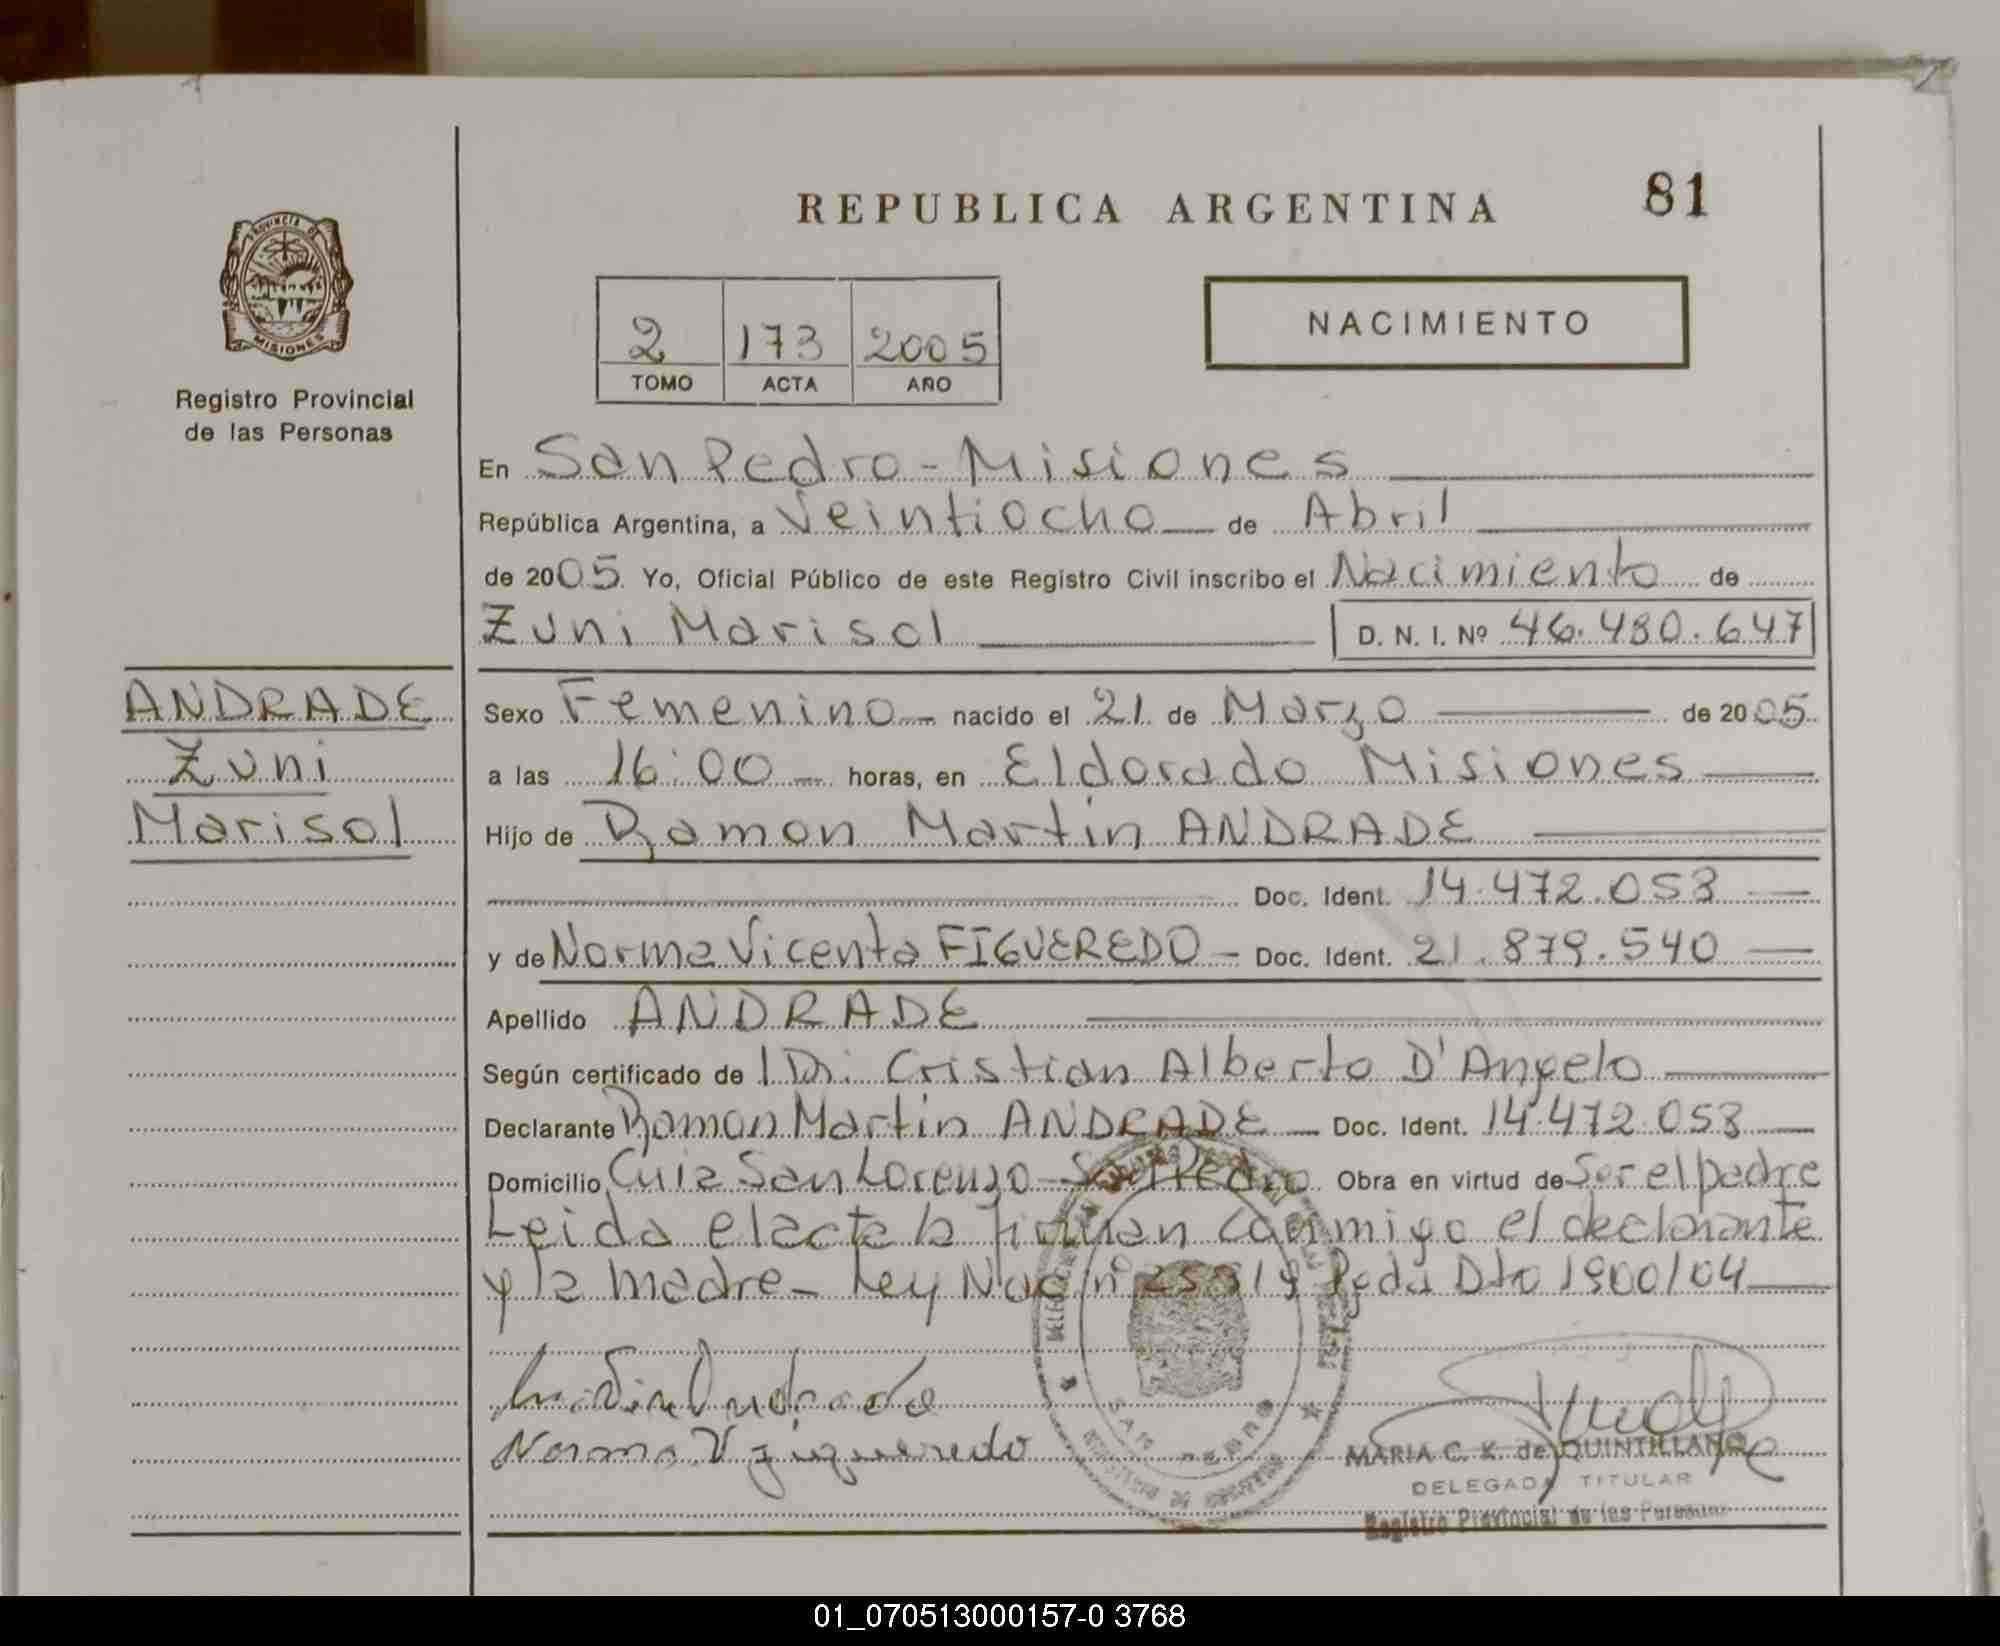 REPUBLICA ARGENTINA
81
PROVINCIA DE
MISIONES
Registro Provincial
de las Personas
2 173 2005
TOMO ACTA AÑO
NACIMIENTO
En San Pedro - Misiones
República Argentina, a Veintiocho de Abril
de 2005. Yo, Oficial Público de este Registro Civil inscribo el Nacimiento de
Zuni Marisol D. N. I. Nº 46.480.647
ANDRADE
Zuni
Marisol
Sexo Femenino nacido el 21 de Marzo de 2005
a las 16:00 horas, en Eldorado Misiones
Hijo de Ramon Martin ANDRADE
Doc. Ident. 14.472.053
y de Norma Vicenta FIGUEREDO - Doc. Ident. 21.879.540
Apellido ANDRADE
Según certificado de Dr. Cristian Alberto D'Angelo
Declarante Ramon Martin ANDRADE Doc. Ident. 14.472.053
Domicilio San Lorenzo - San Pedro Obra en virtud de Ser el padre
Leida el acta la firman conmigo el declarante
y la madre - Ley Nac nº Dto 1900/04
Norma V Figueredo
SAN PEDRO
MARIA C. K. de QUINTILLANO
DELEGADA TITULAR
Registro Provincial de las Personas
01_070513000157-0 3768